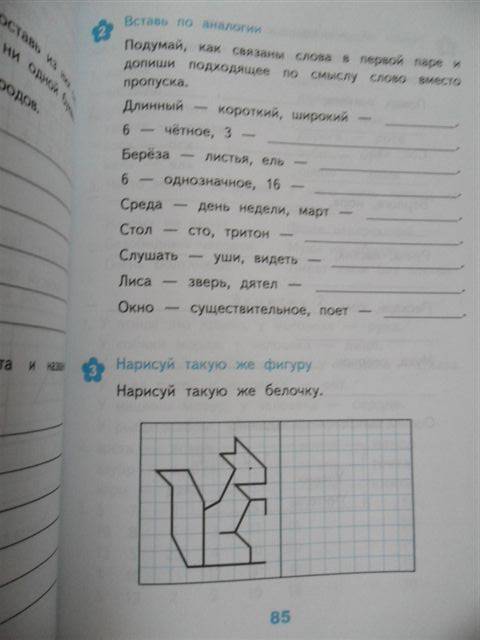 оставь из
ни одной
родов.
та и
2 Вставь по аналогии
Подумай, как связаны слова в первой паре и
допиши подходящее по смыслу слово вместо
пропуска.
Длинный — короткий, широкий — ________.
6 — чётное, 3 — ________.
Берёза — листья, ель — ________.
6 — однозначное, 16 — ________.
Среда — день недели, март — ________.
Стол — сто, тритон — ________.
Слушать — уши, видеть — ________.
Лиса — зверь, дятел — ________.
Окно — существительное, поет — ________.
3 Нарисуй такую же фигуру
Нарисуй такую же белочку.
85